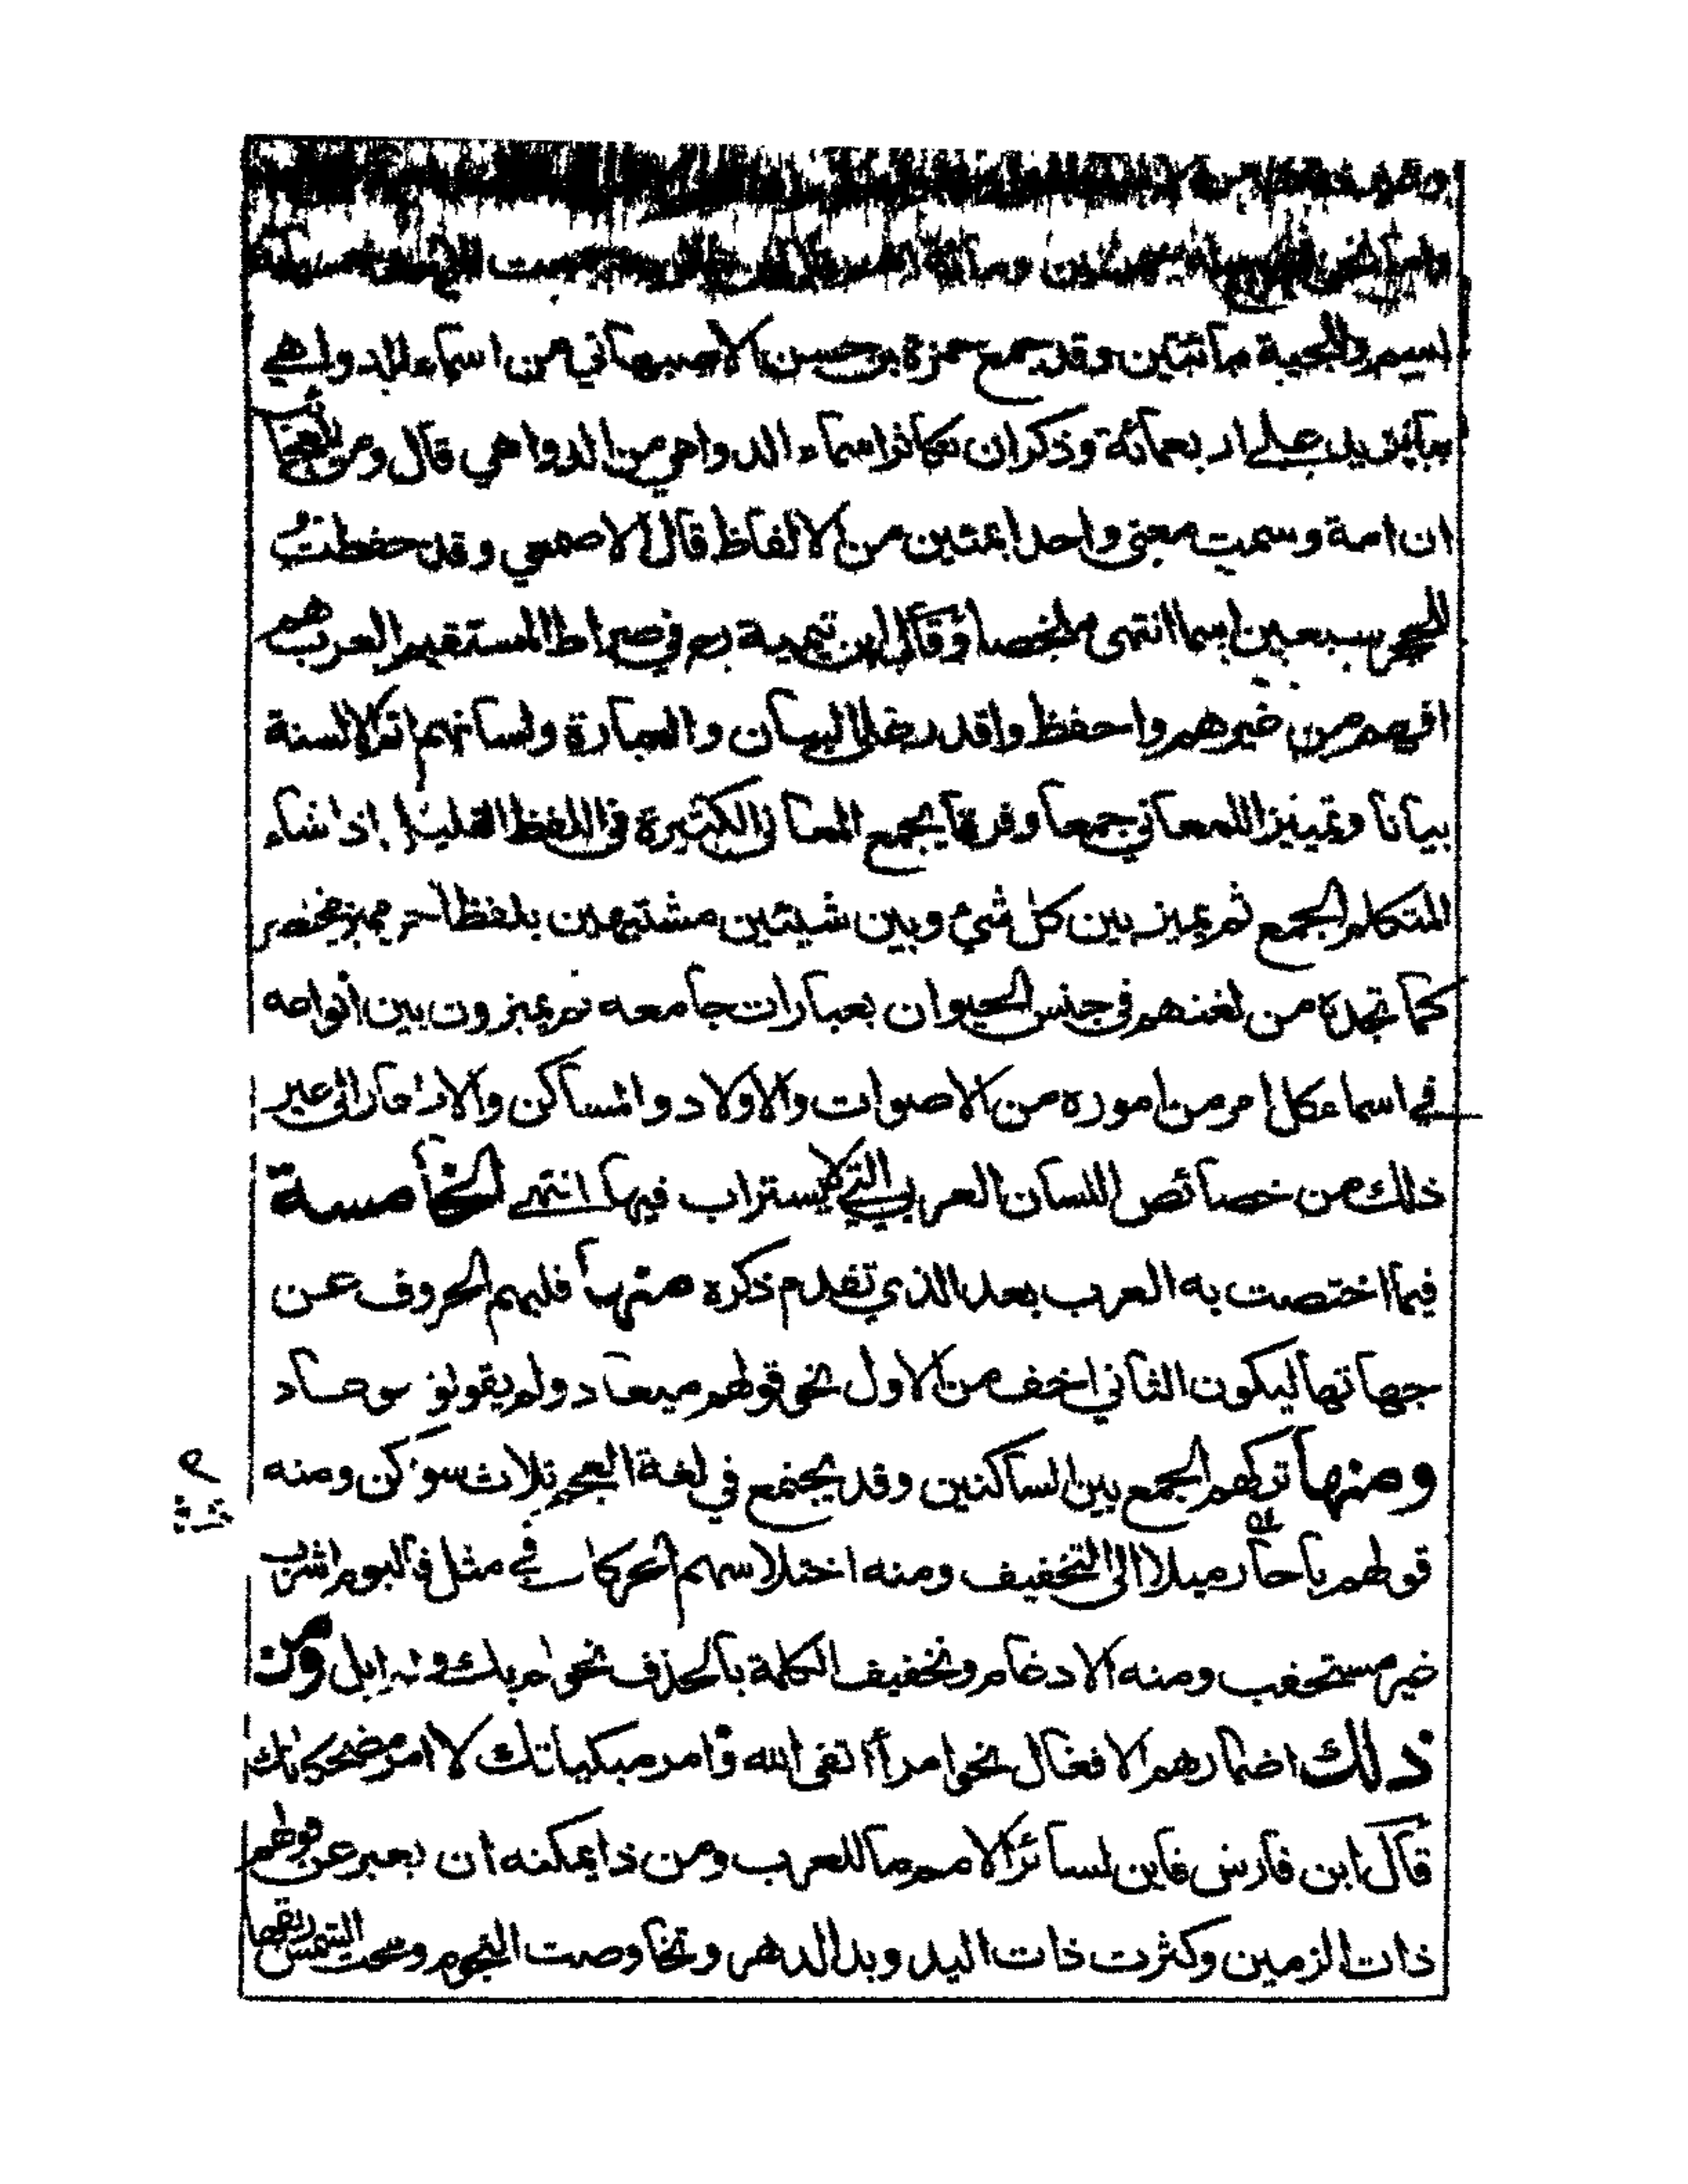 اسيم والحية مائتين وقد جمع حمزة بن حسن الاصبهاني من اسماء الدواهي
ما يزيد على اربعمائة وذكر ان تكاثر اسماء الدواهي من الدواهي قال ومن العجائب
ان امة وسمت معنى واحدا بمئين من الالفاظ قال الاصمعي وقد حفظت
للحجر سبعين اسما انتهى ملخصا وقال ابن تيمية رح في صراط المستقيم العرب هم
افهم من غيرهم واحفظ واقدر على البيان والعبارة ولسانهم اتم الالسنة
بيانا وتمييزا للمعاني جمعا وفرقا يجمع المعاني الكثيرة في اللفظ القليل اذا شاء
المتكلم الجمع ثم يميز بين كل شيء وبين شيئين مشتبهين بلفظ اخر مميز مختصر
كما تجده من لغتهم في جنس الحيوان بعبارات جامعه ثم يميزون بين انواعه
في اسماء كل امر من اموره من الاصوات والاولاد والمساكن والاظفار الى غير
ذلك من خصائص اللسان العربي التي لا يستراب فيها انتهى الخامسة
فيما اختصت به العرب بعد الذي تقدم ذكره منها قلبهم الحروف عن
جهاتها ليكون الثاني اخف من الاول نحو قولهم ميعاد ولم يقولوا موعاد
ومنها تركهم الجمع بين الساكنين وقد يجتمع في لغة العجم ثلاث سواكن ومنه
قولهم يا حار ميلا الى التخفيف ومنه اختلاسهم الحركات في مثل فاليوم اشرب
غير مستحقب ومنه الادغام وتخفيف الكلمة بالحذف نحو لم يك ولم ابل ومن
ذلك اضمارهم الافعال نحو امرأ اتقى الله وامر مبكياتك لا امر مضحكاتك
قال ابن فارس فاين لسائر الامم ما للعرب ومن ذا يمكنه ان يعبر عن قولهم
ذات الزمين وكثرت ذات اليد ويد الدهر وتخاوصت النجوم ومجت الشمس ريقها